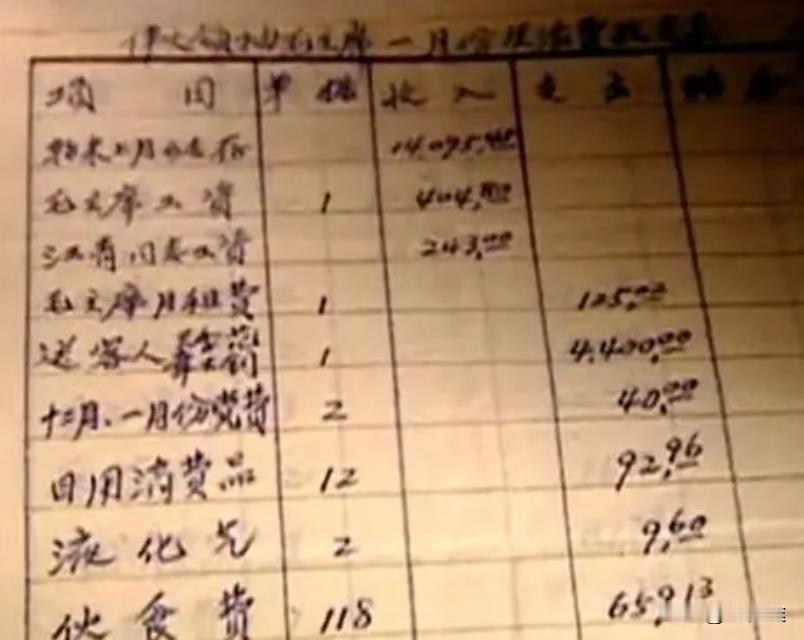 项目 单据 收入 支出 结存
14,095.45
毛主席工资 1 404.80
江青同志工资 243.00
毛主席月租费 1 125.02
送客人 1 4,400.00
十二月、一月份党费 2 40.00
日用消费品 12 92.96
液化气 2 9.60
伙食费 118 659.13